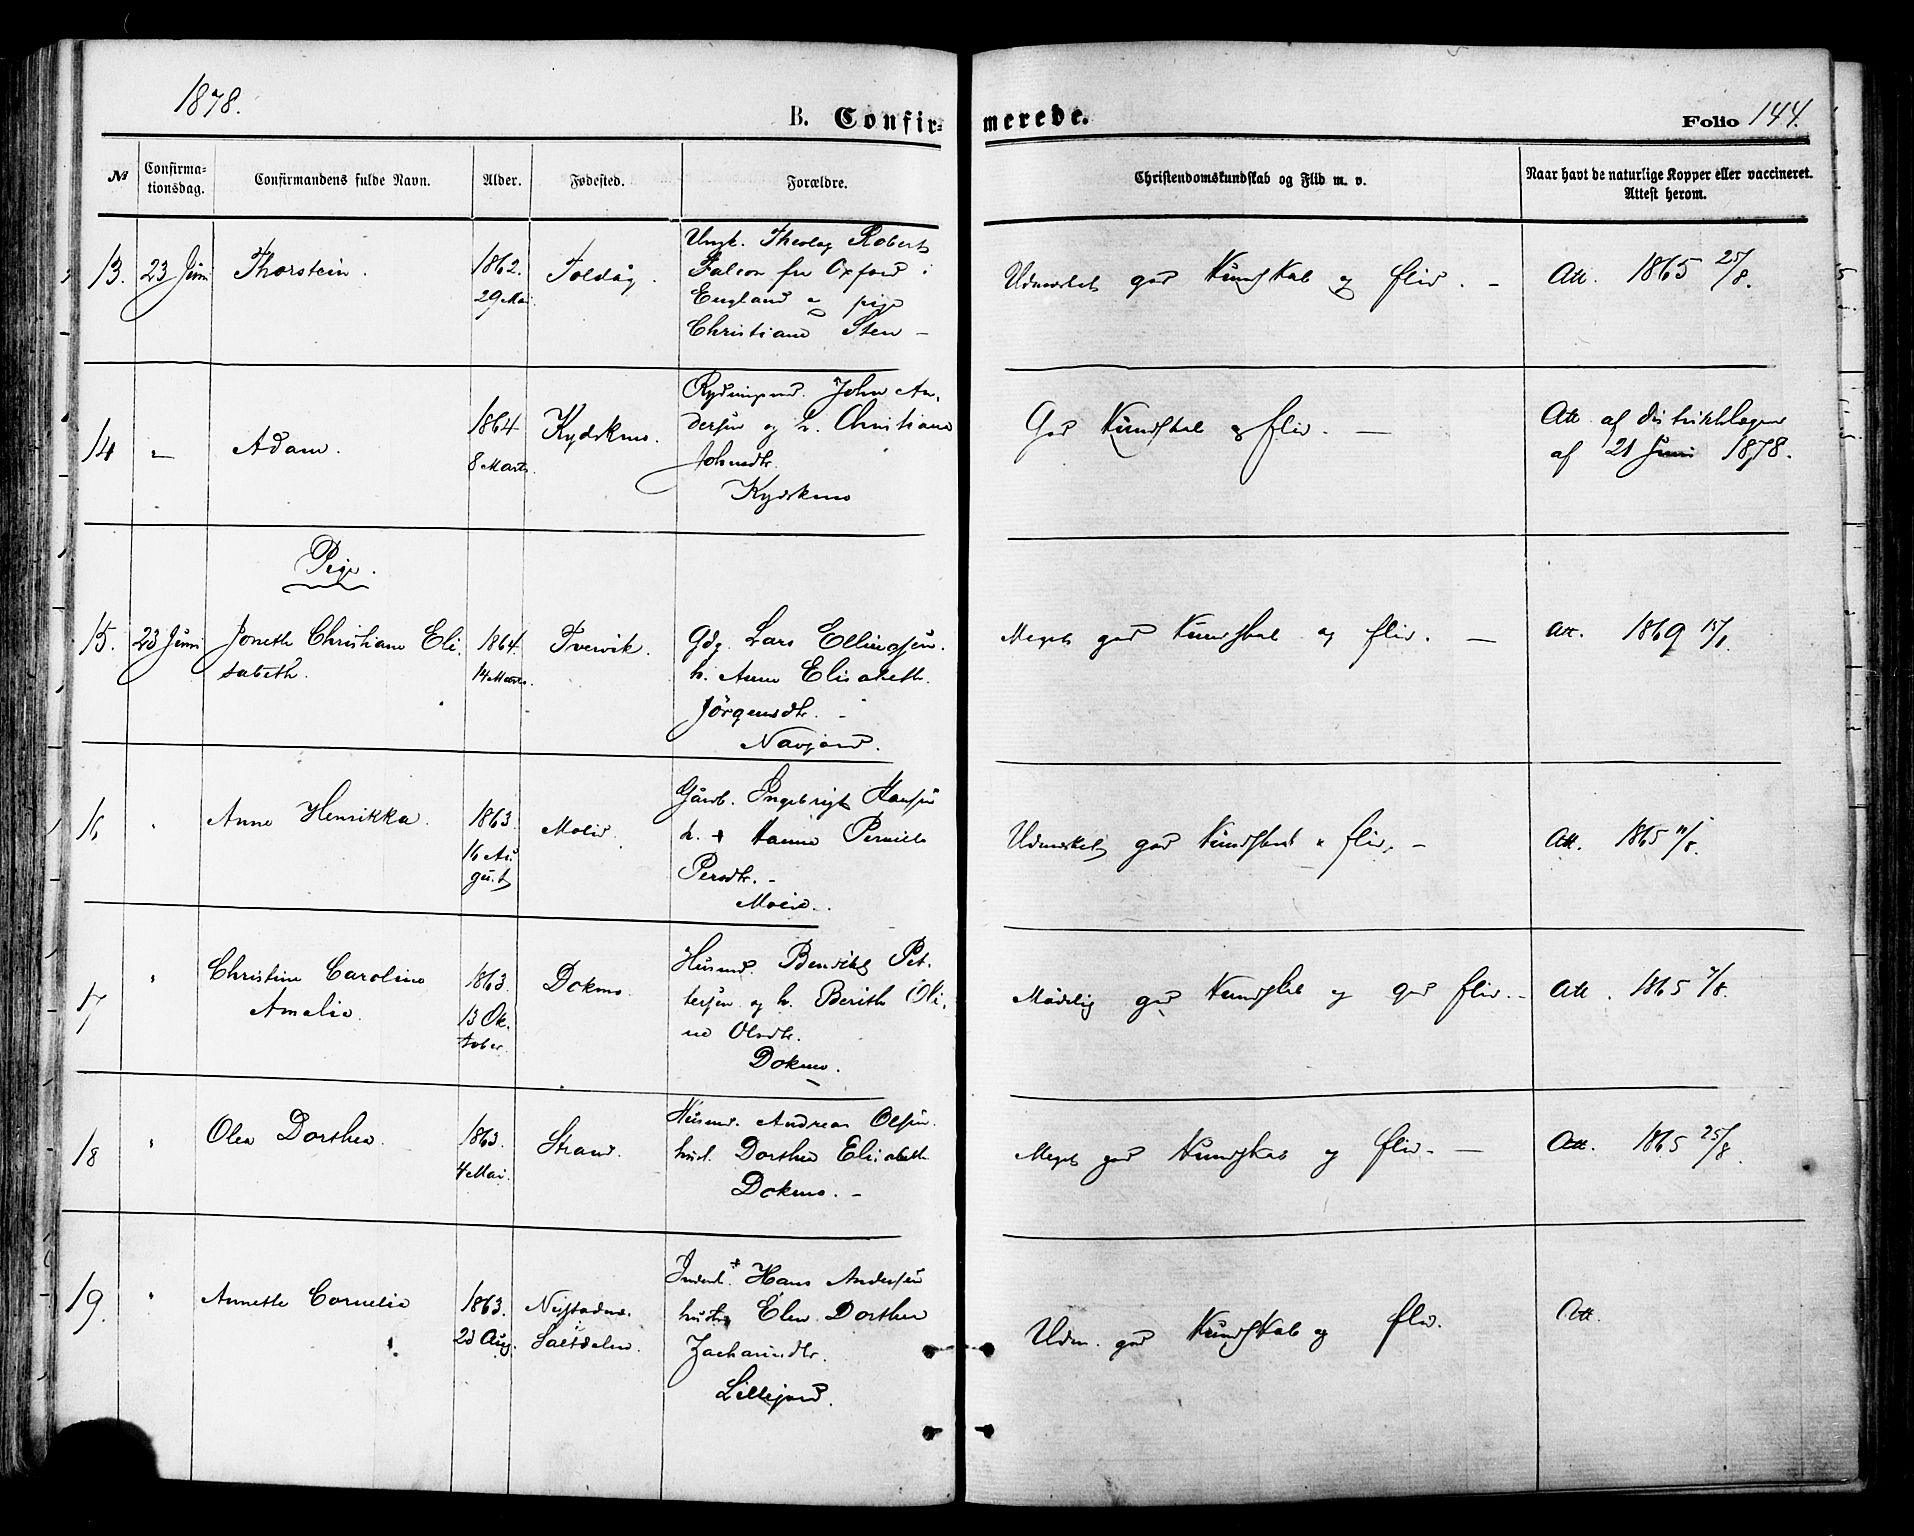 1878.
B. Confirmerede.
Folio 144.
№ Confirmationsdag. Confirmandens fulde Navn. Alder. Fødested. Forældre. Christendomskundskab og Flid m. v. Naar havt de naturlige Kopper eller vaccineret. Attest herom.
13. 23 Juni Thorstein. 1862. 29 Mai. Foldåg.
Ungk. Theolog Robert
Falcon fra Oxford i
England & pige
Christiane Sten –
Udmærket god Kundskab og flid. – Att. 1865 25/8.
14 „ Adam. 1864 8 Marts. Kydskmo.
Rydningsmd. John An-
dersen og h. Christiane
Johnsdtr.
Kydskmo
God Kundskab og flid. – Att. af distriktslægen
af 21 Juni 1878.
Pige.
15. 23 Juni Joneth Christiane Eli-
sabeth. 1864. 14 Marts. Tvervik.
Gdg. Lars Ellingsen.
h. Anne Elisabeth
Jörgensdtr. –
Navjord.
Meget god Kundskab og flid. – Att. 1869 15/1.
16 „ Anne Henrikka. 1863. 16 Au-
gust Moeid.
Gaardb. Ingebrigt Hansen
h. + Hanna Pernille
Persdtr. –
Moeid.
Udmærket god Kundskab & flid. – Att. 1865 11/8.
17 „ Christine Caroline
Amalie. 1863. 13 Ok-
tober. Dokmo.
Husmd. Bendikt Pet-
tersen og h. Berith Oli-
ne Olsdtr.
Dokmo.
Mådelig god Kundskab og god flid. – Att. 1865 7/8.
18 „ Olea Dorthea. 1863. 4 Mai. Strand.
Husmd. Andreas Olsen.
hust. Dorthea Elisabeth
Dokmo. –
Meget god Kundskab og flid. – Att. 1865 25/8.
19. „ Annette Cornelie 1863. 23 Aug. Saltdalen.
Inderst + Hans Andersen
hustr. Elen Dorthea
Zachariasdtr.
Lillejord.
Udm. god Kundskab og flid. Att.